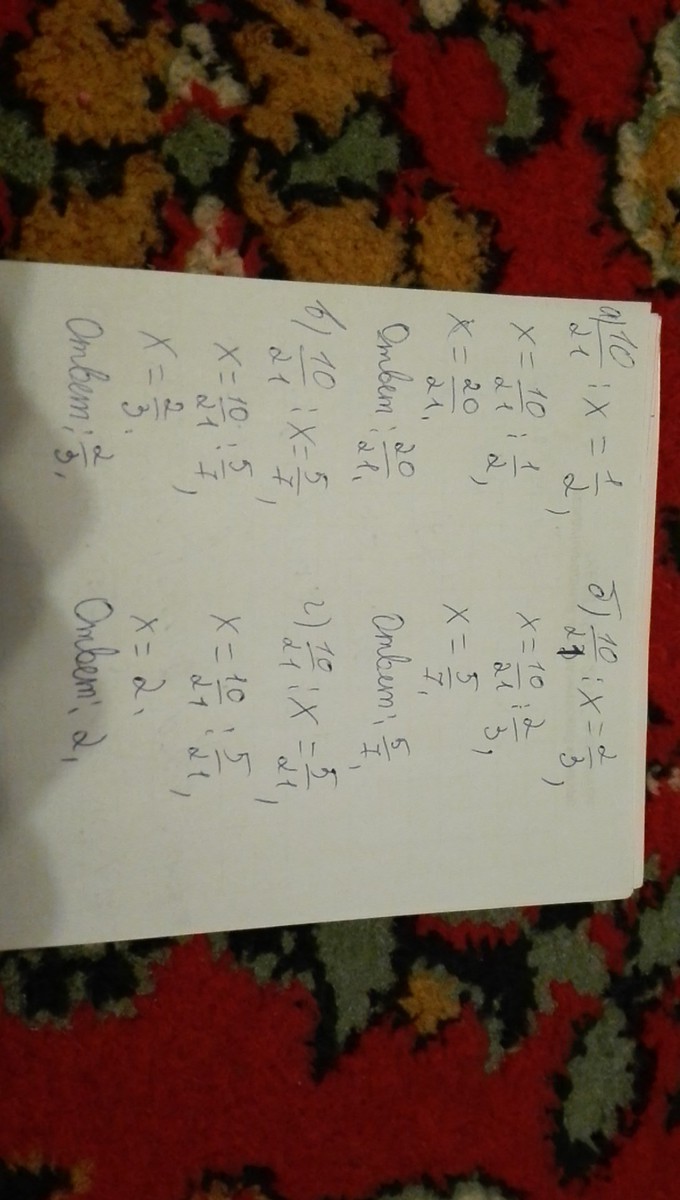 а) 10/21 : x = 1/2,
x = 10/21 : 1/2,
x = 20/21,
Ответ: 20/21,
б) 10/21 : x = 2/3,
x = 10/21 : 2/3,
x = 5/7,
Ответ: 5/7,
в) 10/21 : x = 5/7,
x = 10/21 : 5/7,
x = 2/3,
Ответ: 2/3,
г) 10/21 : x = 5/21,
x = 10/21 : 5/21,
x = 2,
Ответ: 2,